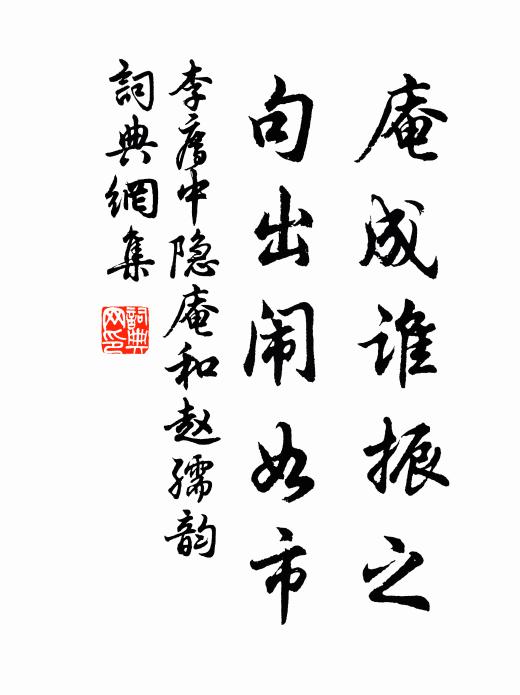 庵成谁振之
句出闹如市
李膺中隐庵和赵孺韵
詞典網集
詞典网印